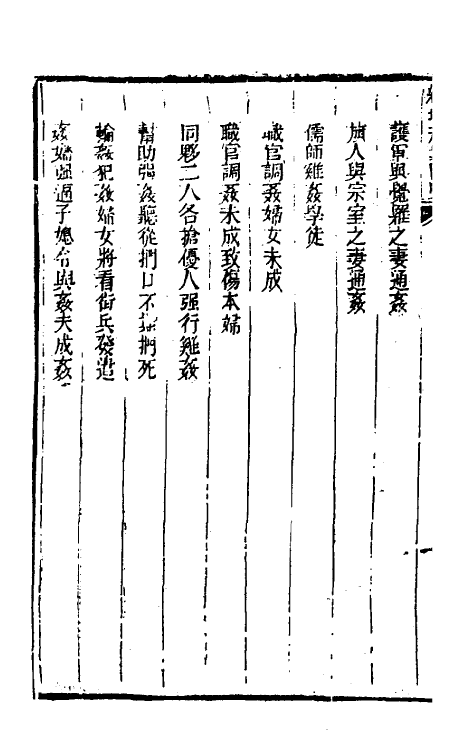 護軍與覺羅之妻通姦
旗人與宗室之妻通姦
儒師雞姦學徒
職官調姦婦女未成
職官調姦未成致傷本婦
同夥二人各搶優人强行雞姦
幫助强姦聽從捫口不期捫死
輪姦犯姦婦女將看街兵發遣
姦婦强逼子媳合與姦夫成姦